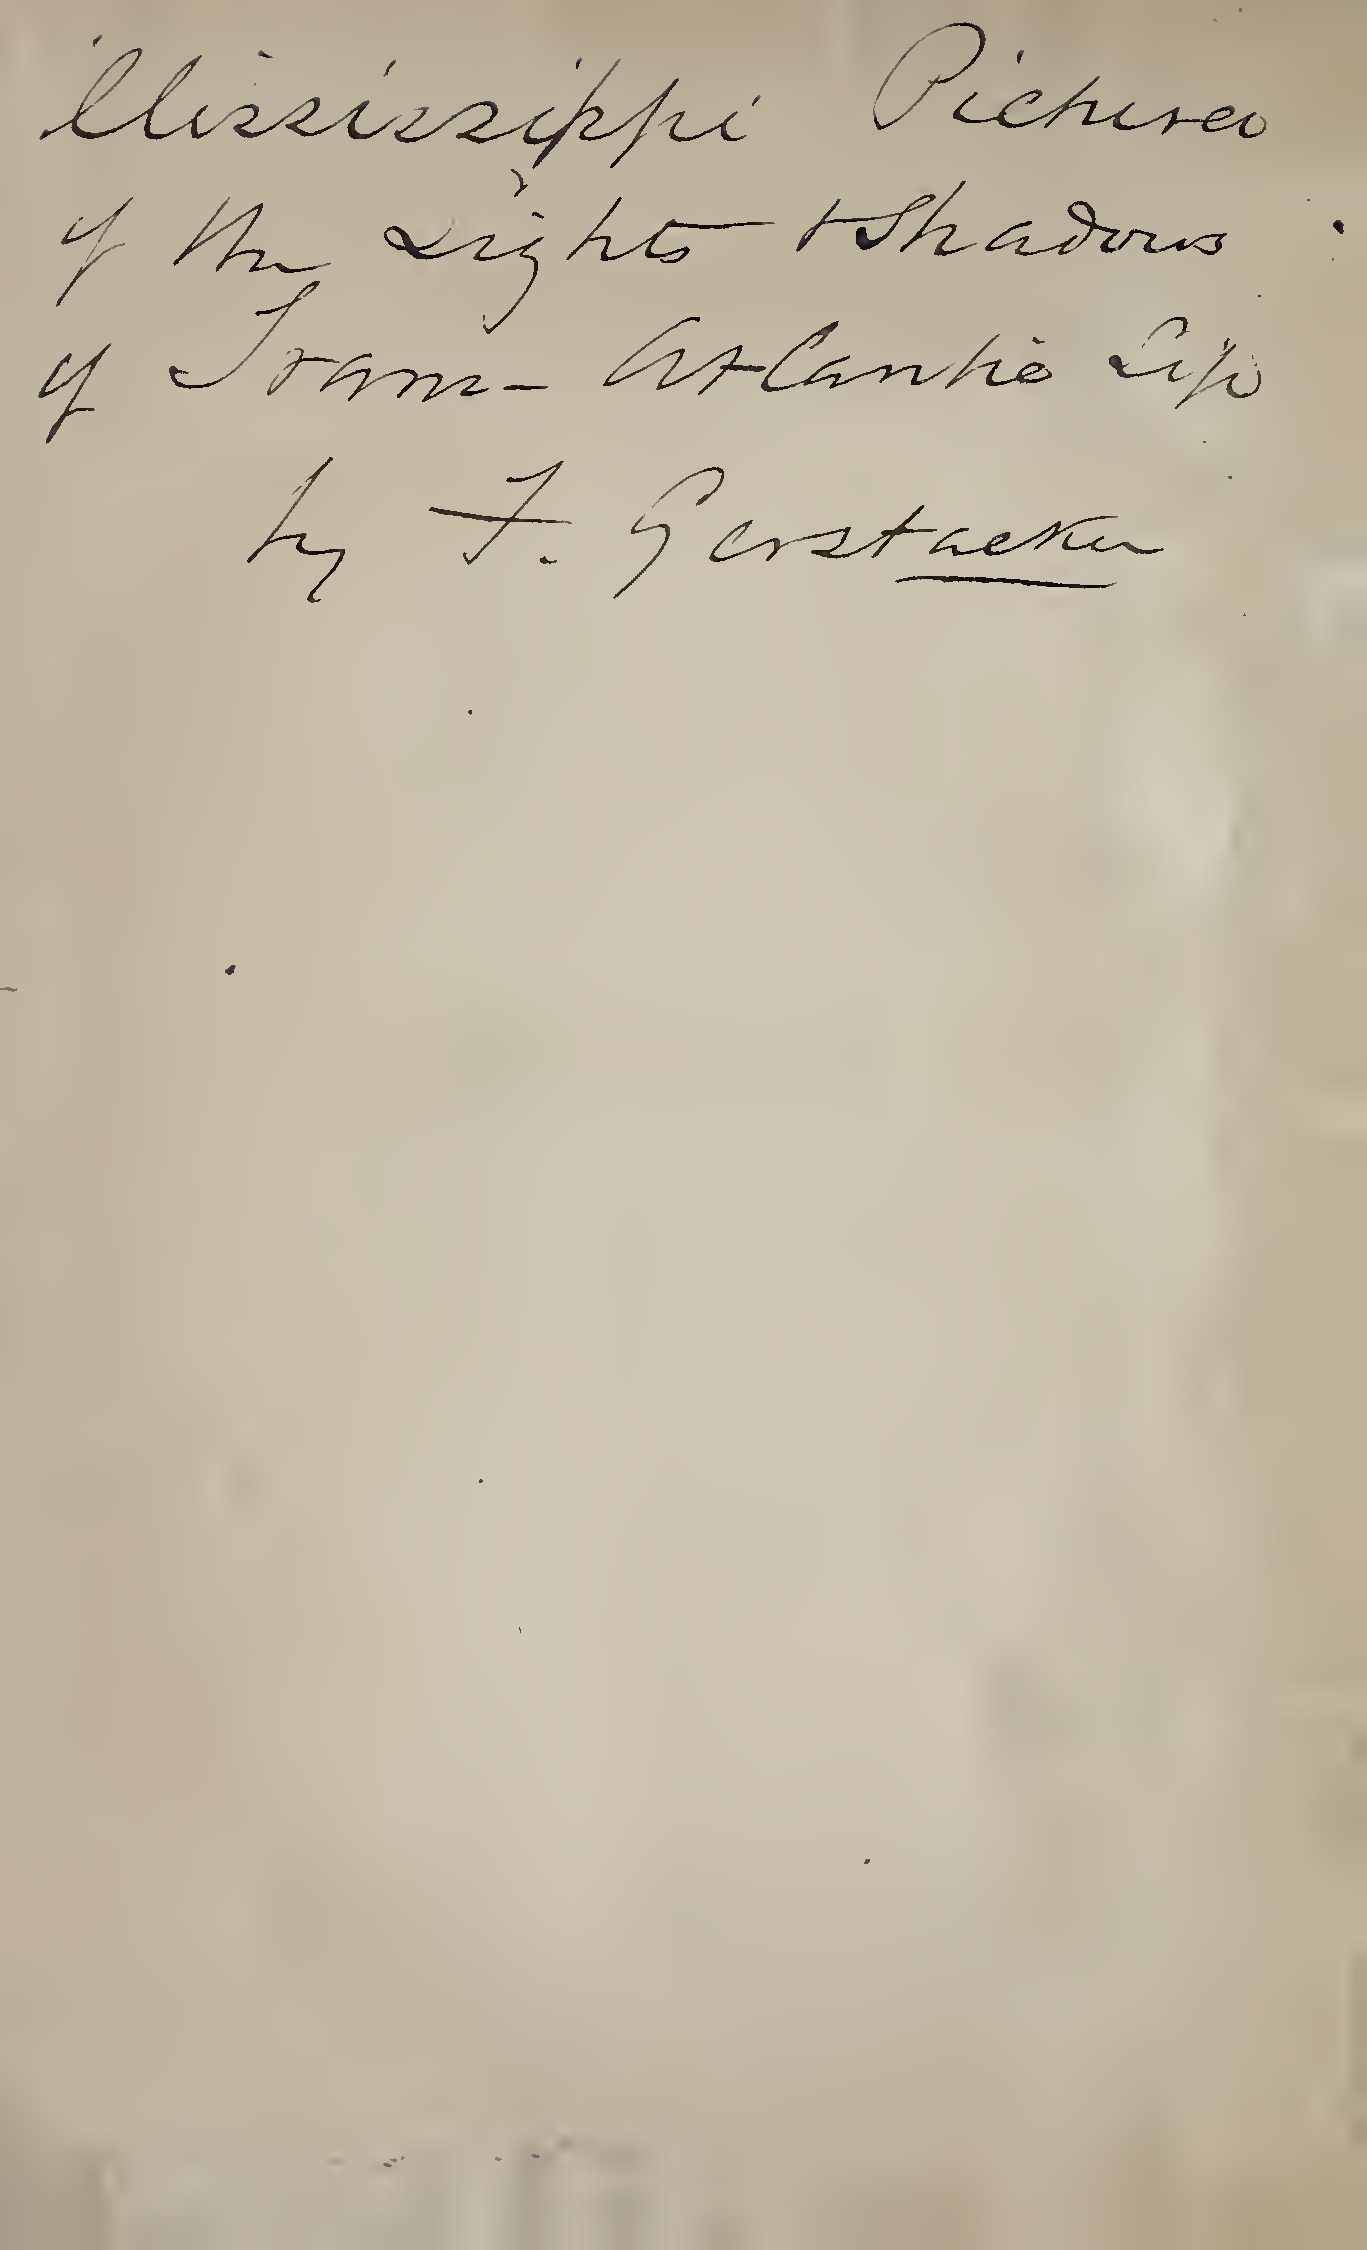 Mississippi Pictures
of the Lights & Shadows
of Trans-Atlantic Life
by F. Gerstaecker